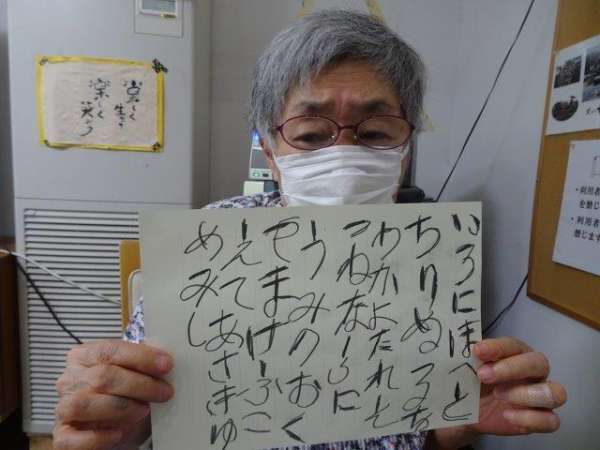 いろにほへと
ちりぬるを
わかよたれそ
つねな
うみのおく
やまけふこ
えてあさきゆ
めみし
楽しく
生きて
楽しく
笑おう
・利用者
を禁じ
・利用者
禁じます